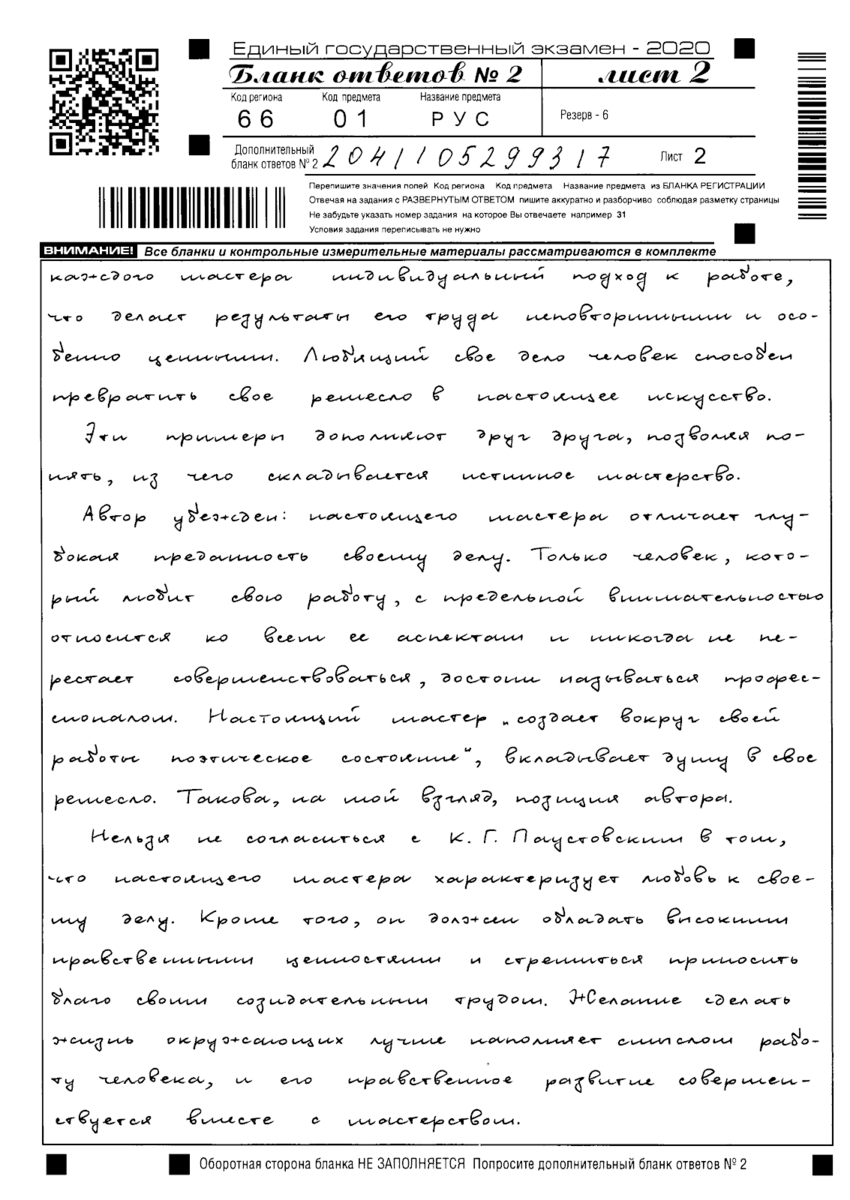 Единый государственный экзамен - 2020
Бланк ответов № 2 лист 2
Код региона Код предмета Название предмета
66 01 РУС Резерв - 6
Дополнительный бланк ответов № 2 2041105299317 Лист 2
Перепишите значения полей Код региона Код предмета Название предмета из БЛАНКА РЕГИСТРАЦИИ
Отвечая на задания с РАЗВЕРНУТЫМ ОТВЕТОМ пишите аккуратно и разборчиво соблюдая разметку страницы
Не забудьте указать номер задания на которое Вы отвечаете например 31
Условия задания переписывать не нужно
ВНИМАНИЕ! Все бланки и контрольные измерительные материалы рассматриваются в комплекте
каждого мастера индивидуальный подход к работе,
что делает результаты его труда неповторимыми и осо-
бенно ценными. Любящий свое дело человек способен
превратить свое ремесло в настоящее искусство.
Эти примеры дополняют друг друга, позволяя по-
нять, из чего складывается истинное мастерство.
Автор убежден: настоящего мастера отличает глу-
бокая преданность своему делу. Только человек, кото-
рый любит свою работу, с предельной внимательностью
относится ко всем ее аспектам и никогда не пе-
рестает совершенствоваться, достоин называться профес-
сионалом. Настоящий мастер „создает вокруг своей
работы поэтическое состояние“, вкладывает душу в свое
ремесло. Такова, на мой взгляд, позиция автора.
Нельзя не согласиться с К. Г. Паустовским в том,
что настоящего мастера характеризует любовь к свое-
му делу. Кроме того, он должен обладать высокими
нравственными ценностями и стремиться приносить
благо своим созидательным трудом. Желание сделать
жизнь окружающих лучше наполняет смыслом рабо-
ту человека, и его нравственное развитие совершен-
ствуется вместе с мастерством.
Оборотная сторона бланка НЕ ЗАПОЛНЯЕТСЯ Попросите дополнительный бланк ответов № 2